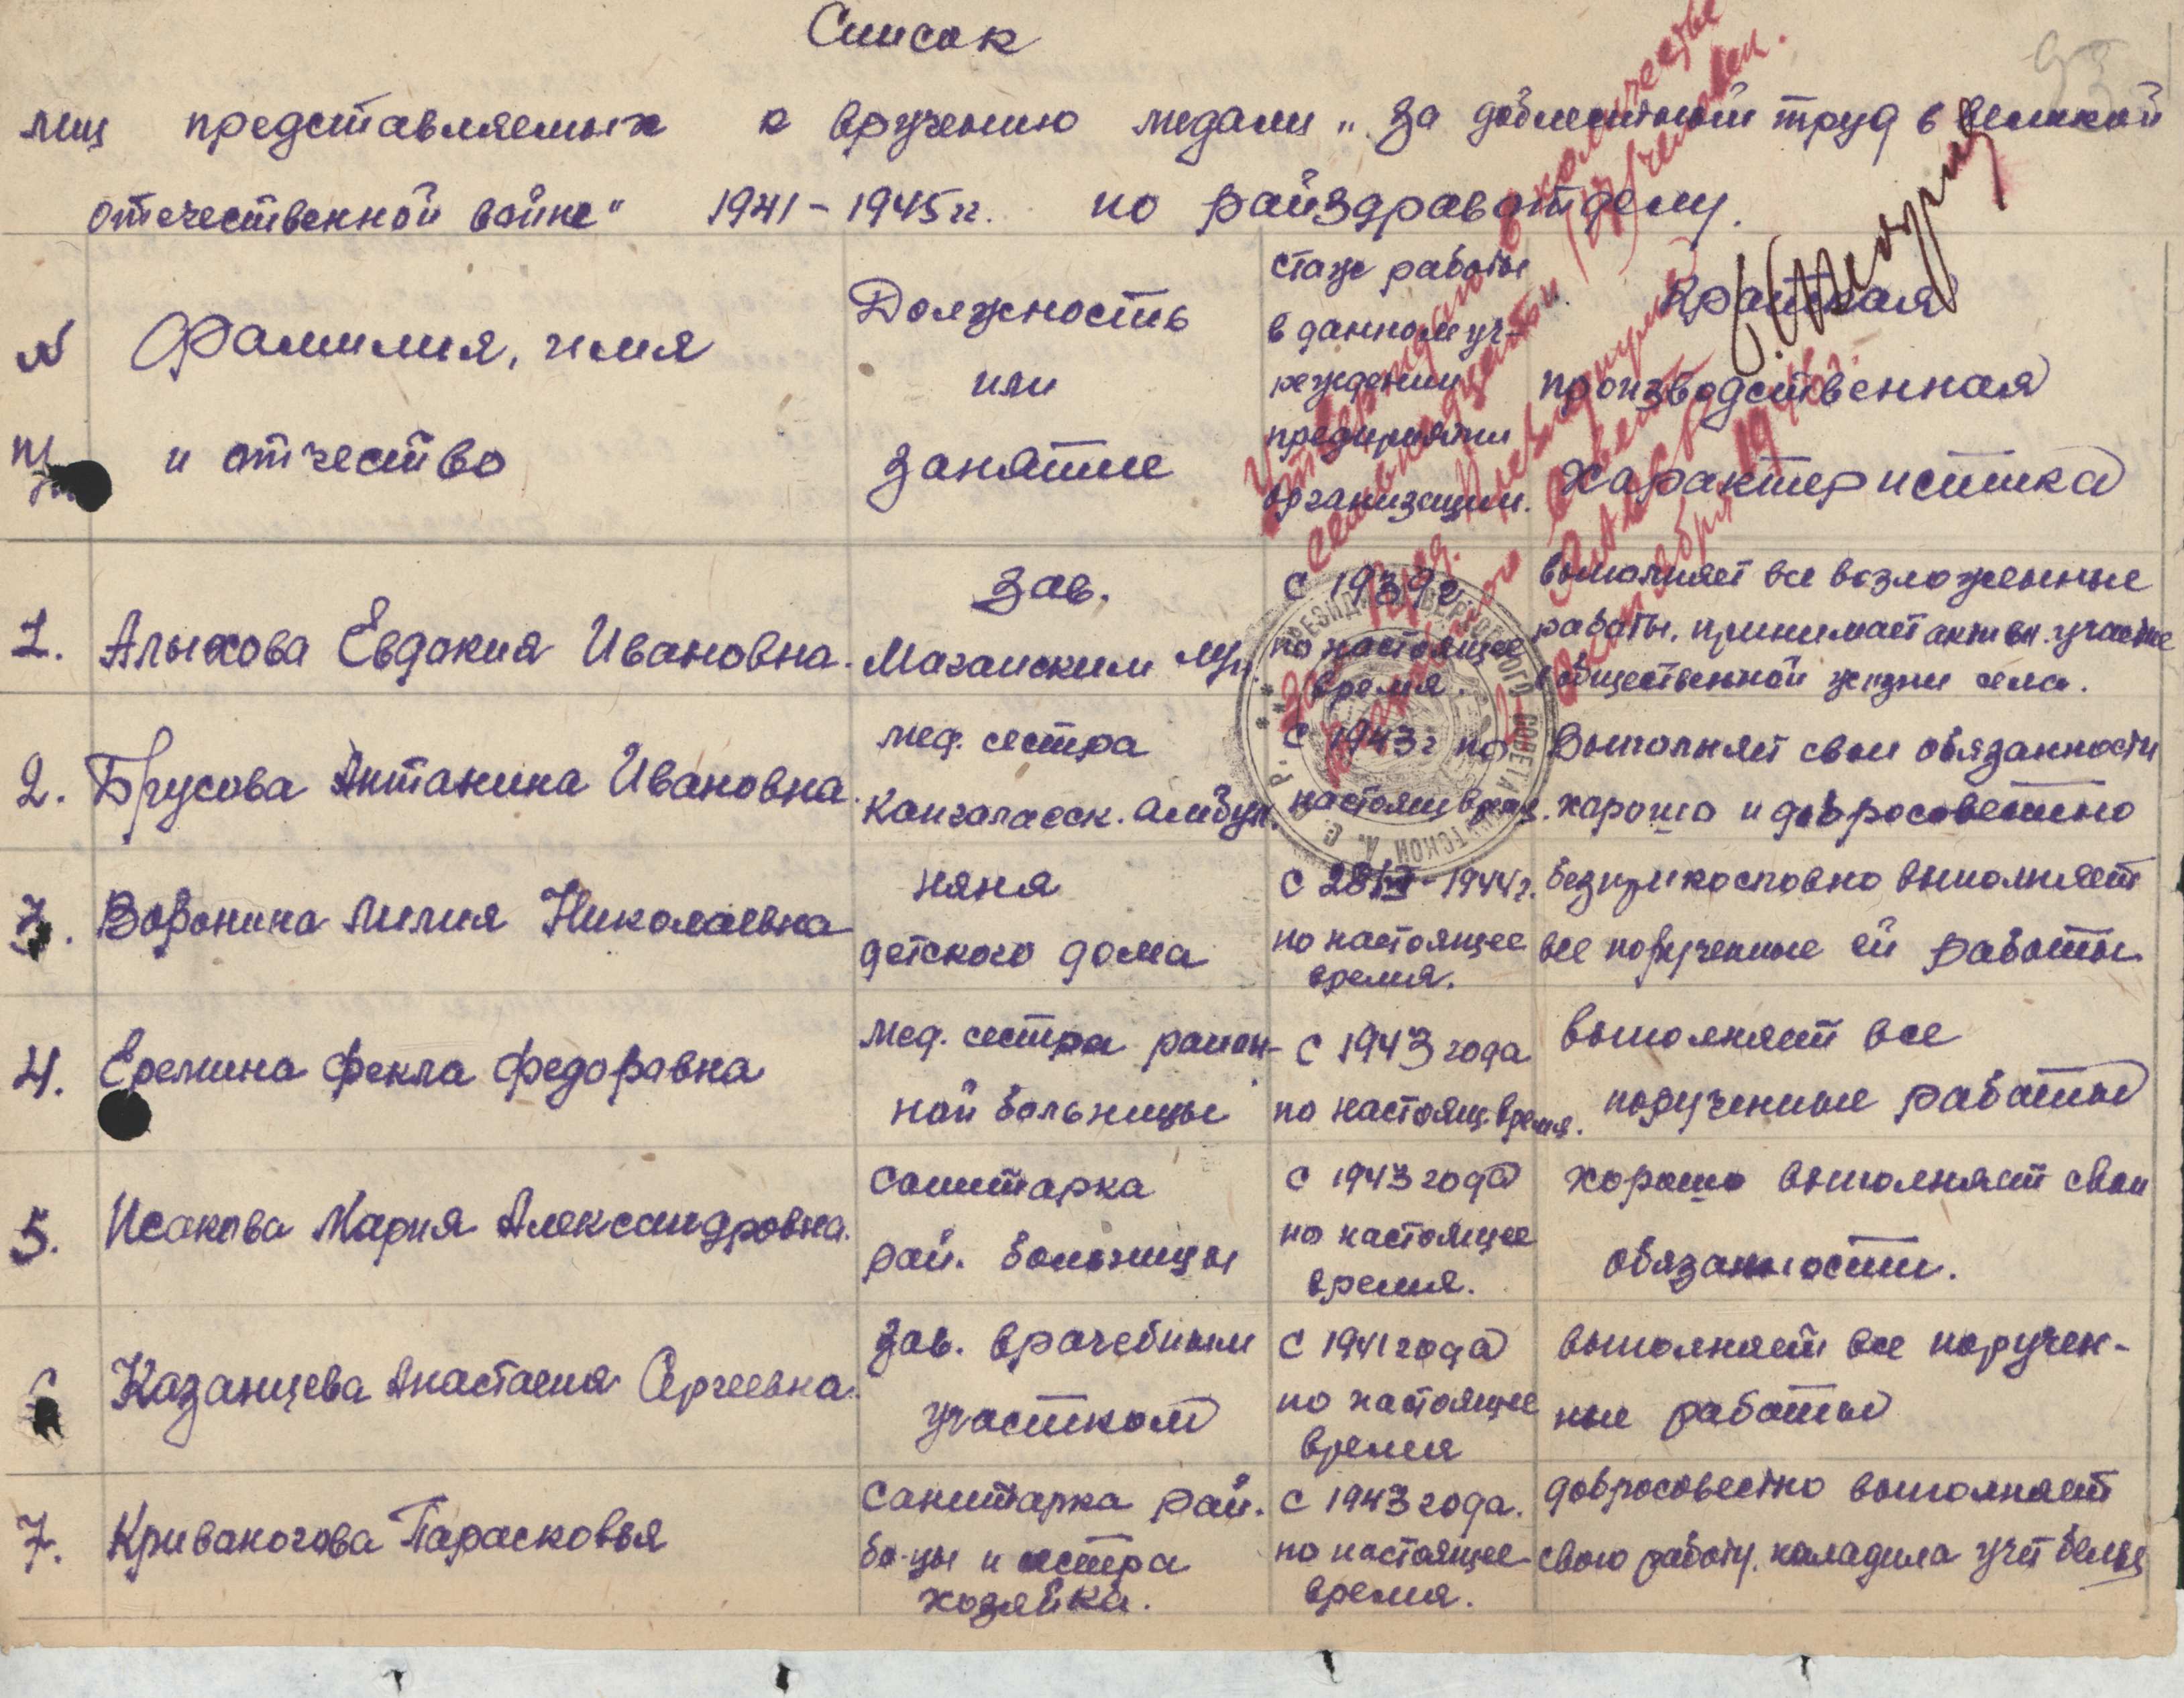 Список
лиц представляемых к вручению медали „За доблестный труд в великой
отечественной войне" 1941-1945гг. по райздравотделу.
93
N
пп
Фамилия, имя
и отчество
Должность
или
занятие
стаж работы
в данном уч-
реждении
предприятии
организации.
Краткая
производственная
характеристика
Утверждаю в количестве
семнадцати (17) человек.
Зам. Пред. Президиума
Верховного Совета
ЯАССР
1.
Алыхова Евдокия Ивановна.
Зав.
Маганским мп.
с 1939г
по настоящее
время.
выполняет все возложенные
работы, принимает активн. участие
в общественной жизни села.
2.
Брусова Антанина Ивановна.
мед. сестра
Кангаласск. амбул.
с 1943г по
настоящ врем.
Выполняет свои обязанности
хорошо и добросовестно
3.
Воронина Лилия Николаевна
няня
детского дома
с 28 1944г.
по настоящее
время.
безприкословно выполняет
все порученные ей работы
4.
Еремина Фекла Федоровна
мед. сестра район-
ной больницы
с 1943 года
по настоящ. время.
выполняет все
порученные работы
5.
Исакова Мария Александровна.
санитарка
рай. больницы
с 1943 года
по настоящее
время.
хорошо выполняет свои
обязанности.
6
Казанцева Анастасия Сергеевна.
Зав. врачебным
участком
с 1941 года
по настоящее
время
выполняет все поручен-
ные работы
7.
Криваногова Парасковья
Санитарка рай.
бо-цы и сестра
хозяйка.
с 1943 года.
по настоящее
время.
добросовестно выполняет
свою работу, наладила учет белья